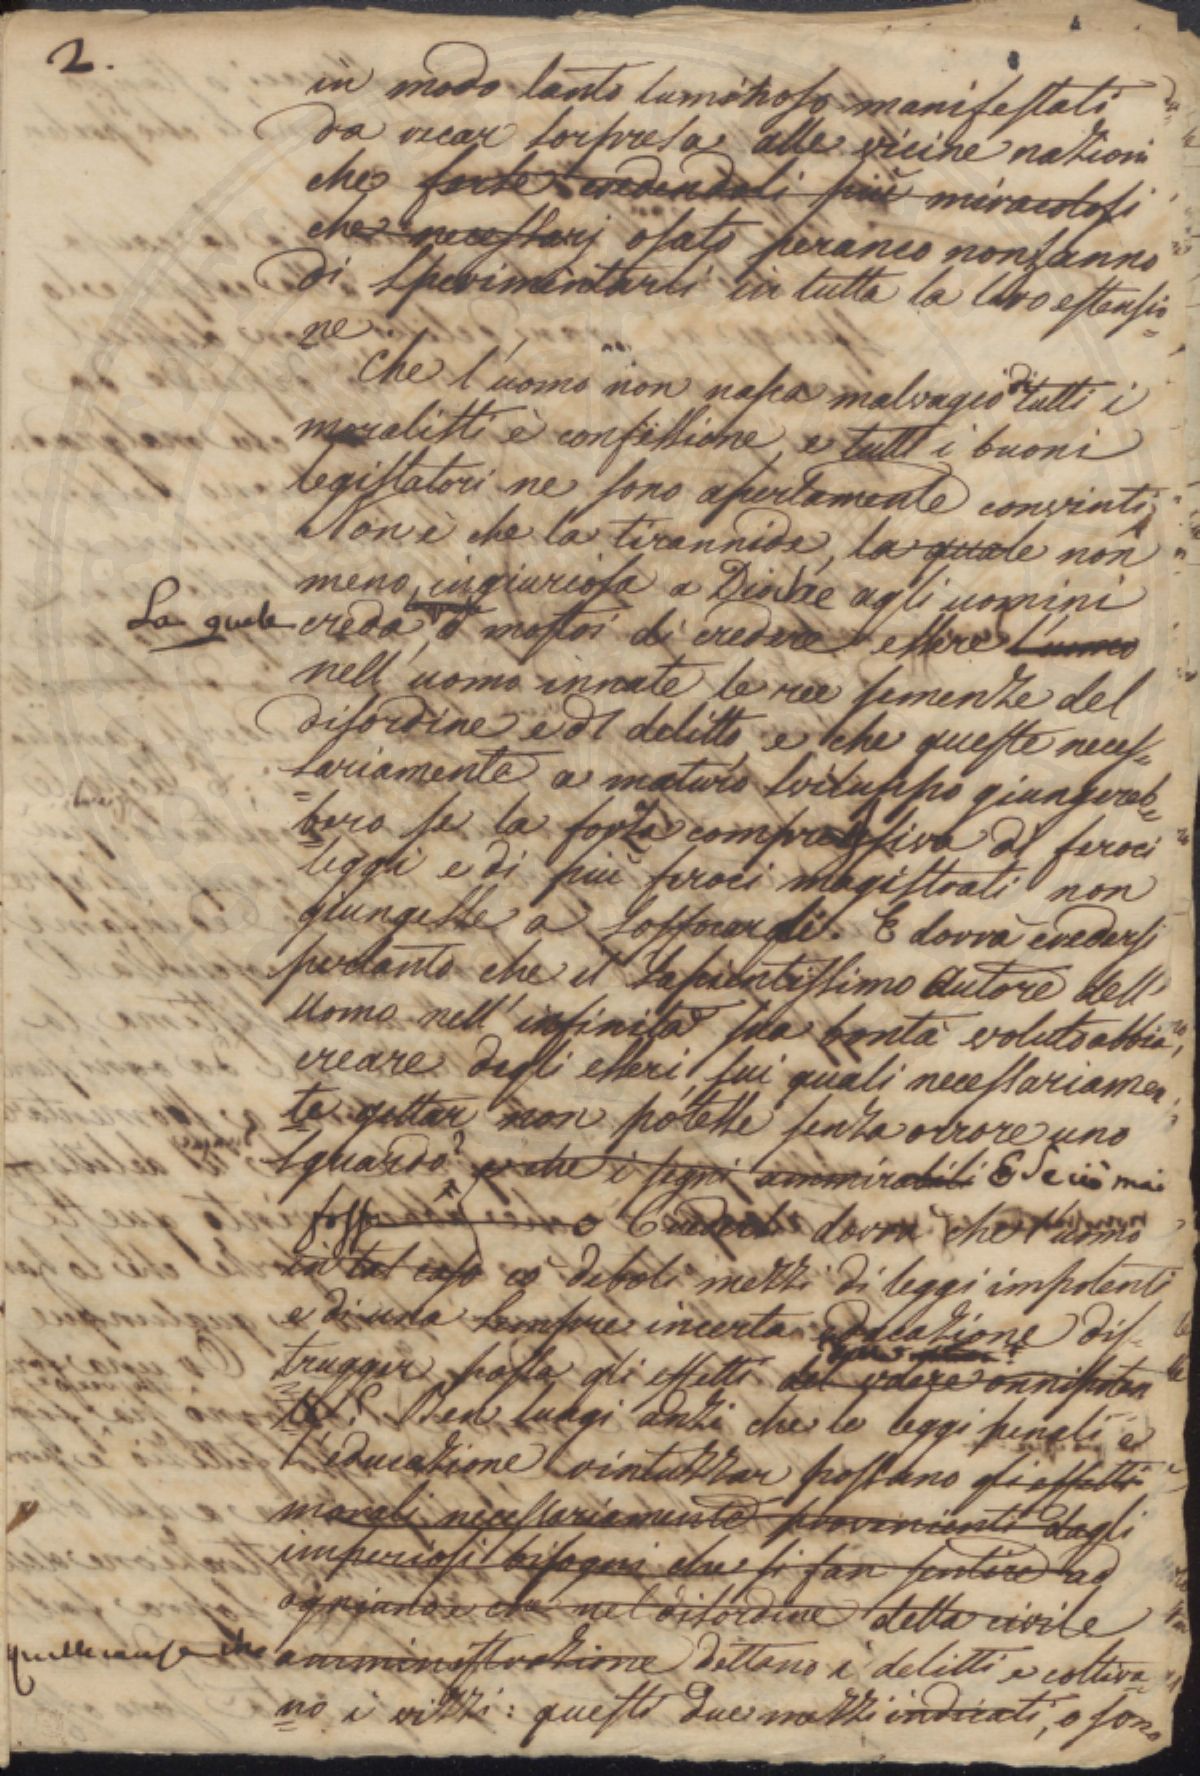 2.
in modo tanto luminoso manifestati
da recar sorpresa alle vicine nazioni
che forse credendoli più miracolosi
che necessarj osato peranco non hanno
di sperimentarli in tutta la loro estensio=
ne.
Che l'uomo non nasca malvagio di tutti i
moralisti è confessione, e tutti i buoni
legislatori ne sono apertamente convinti,
Non è che la tirannide, la quale non
meno ingiuriosa a Dio che agli uomini
La quale
creda, o mostri di credere essere l'uomo
nell'uomo innate le ree semenze del
disordine e del delitto, e che queste neces=
sariamente a maturo sviluppo giungereb=
bero se la forza compressiva di feroci
leggi e di più feroci magistrati non
giungesse a soffocarle. E dovrà credersi
pertanto che il sapientissimo Autore dell'
Uomo nell'infinita sua bontà voluto abbia
creare degli esseri, sui quali necessariamen
te gettar non potesse senza orrore uno
sguardo? che i segni ammirabili E se ciò mai
fosse creder dovrà che l'uomo
in tal caso co' deboli mezzi di leggi impotenti
e di una sempre incerta educazione dis=
trugger possa gli effetti del volere onnipoten
te? Ben lungi anzi che le leggi penali e
l'educazione rintuzzar possano gli effetti
morali necessariamente provenienti dagli
imperiosi bisogni che si fan sentire ad
ognuno e che nel disordine della civile
quelle cause che
amministrazione dettano i delitti e coltiva=
no i vizzi: questi due mezzi indicati, o sono